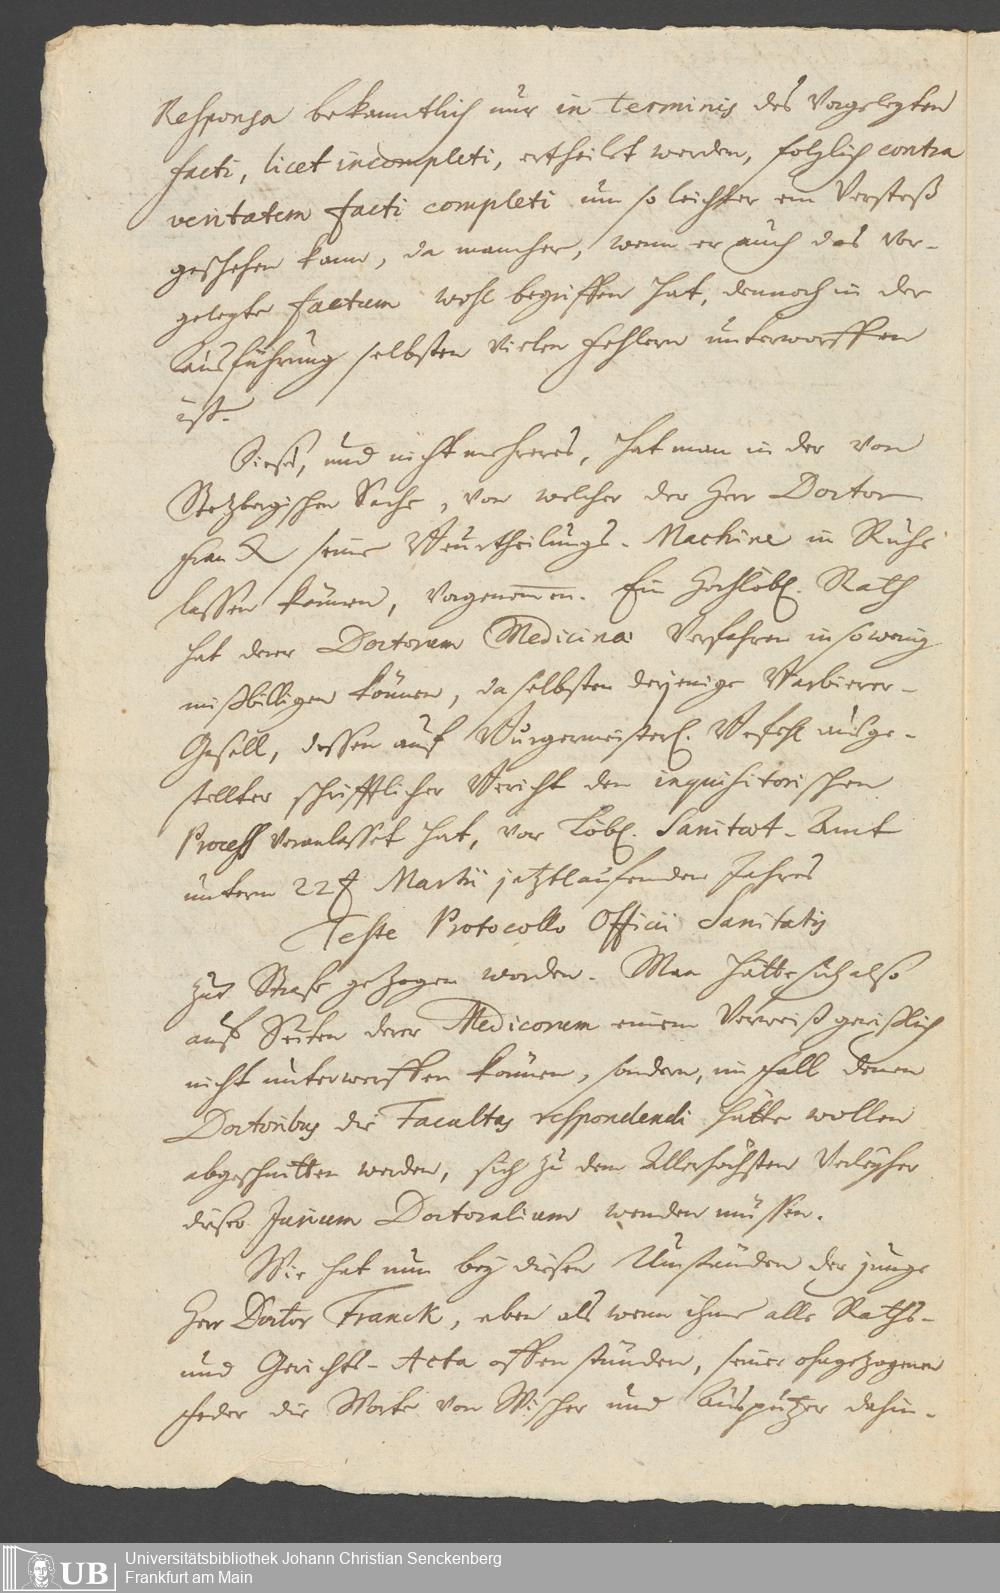 Responsa bekanntlich nur in terminis des vorgelegten
facti, licet incompleti, ertheilet werden, folglich contra
veritatem facti completi um so leichter ein Verstoß
geschehen kann, da mancher, wenn er auch das vor-
gelegte factum wohl begriffen hat, dennoch in der
Ausführung selbsten vielen Fehlern unterworffen
ist.
Dieses, und nicht mehreres, hat man in der von
Stetzbergischen Sache, von welcher der Herr Doctor
Franck seine Beurtheilungs-Machine in Ruhe
lassen können, vorgenommen. Ein Hochlöbl. Rath
hat derer Doctorum Medicinae Verfahren in so wenig
mißbilligen können, da selbsten derjenige Barbierer-
Gesell, dessen auf Burgermeisterl. Befehl ausge-
stellter schrifftlicher Bericht den inquisitorischen
Process veranlasset hat, vor Löbl. Sanitaet-Amt
unterm 22t Martii jetztlaufenden Jahres
Teste Protocollo Officii Sanitatis
zur Strafe gezogen worden. Man hätte sich also
auf Seiten derer Medicorum einem Verweiß gewißlich
nicht unterwerffen können, sondern, im Fall denen
Doctoribus die Facultas respondendi hätte wollen
abgeschnitten werden, sich zu dem Allerhöchsten Verleyher
dieser Jurium Doctoralium wenden müssen.
Wie hat nun bey diesen Umständen der junge
Herr Doctor Franck, eben als wenn ihme alle Raths-
und Gerichts-Acta offen stünden, seiner ohngezogenen
Feder die Worte von Wischer und Ausputzer dahin-
Universitätsbibliothek Johann Christian Senckenberg
UB Frankfurt am Main